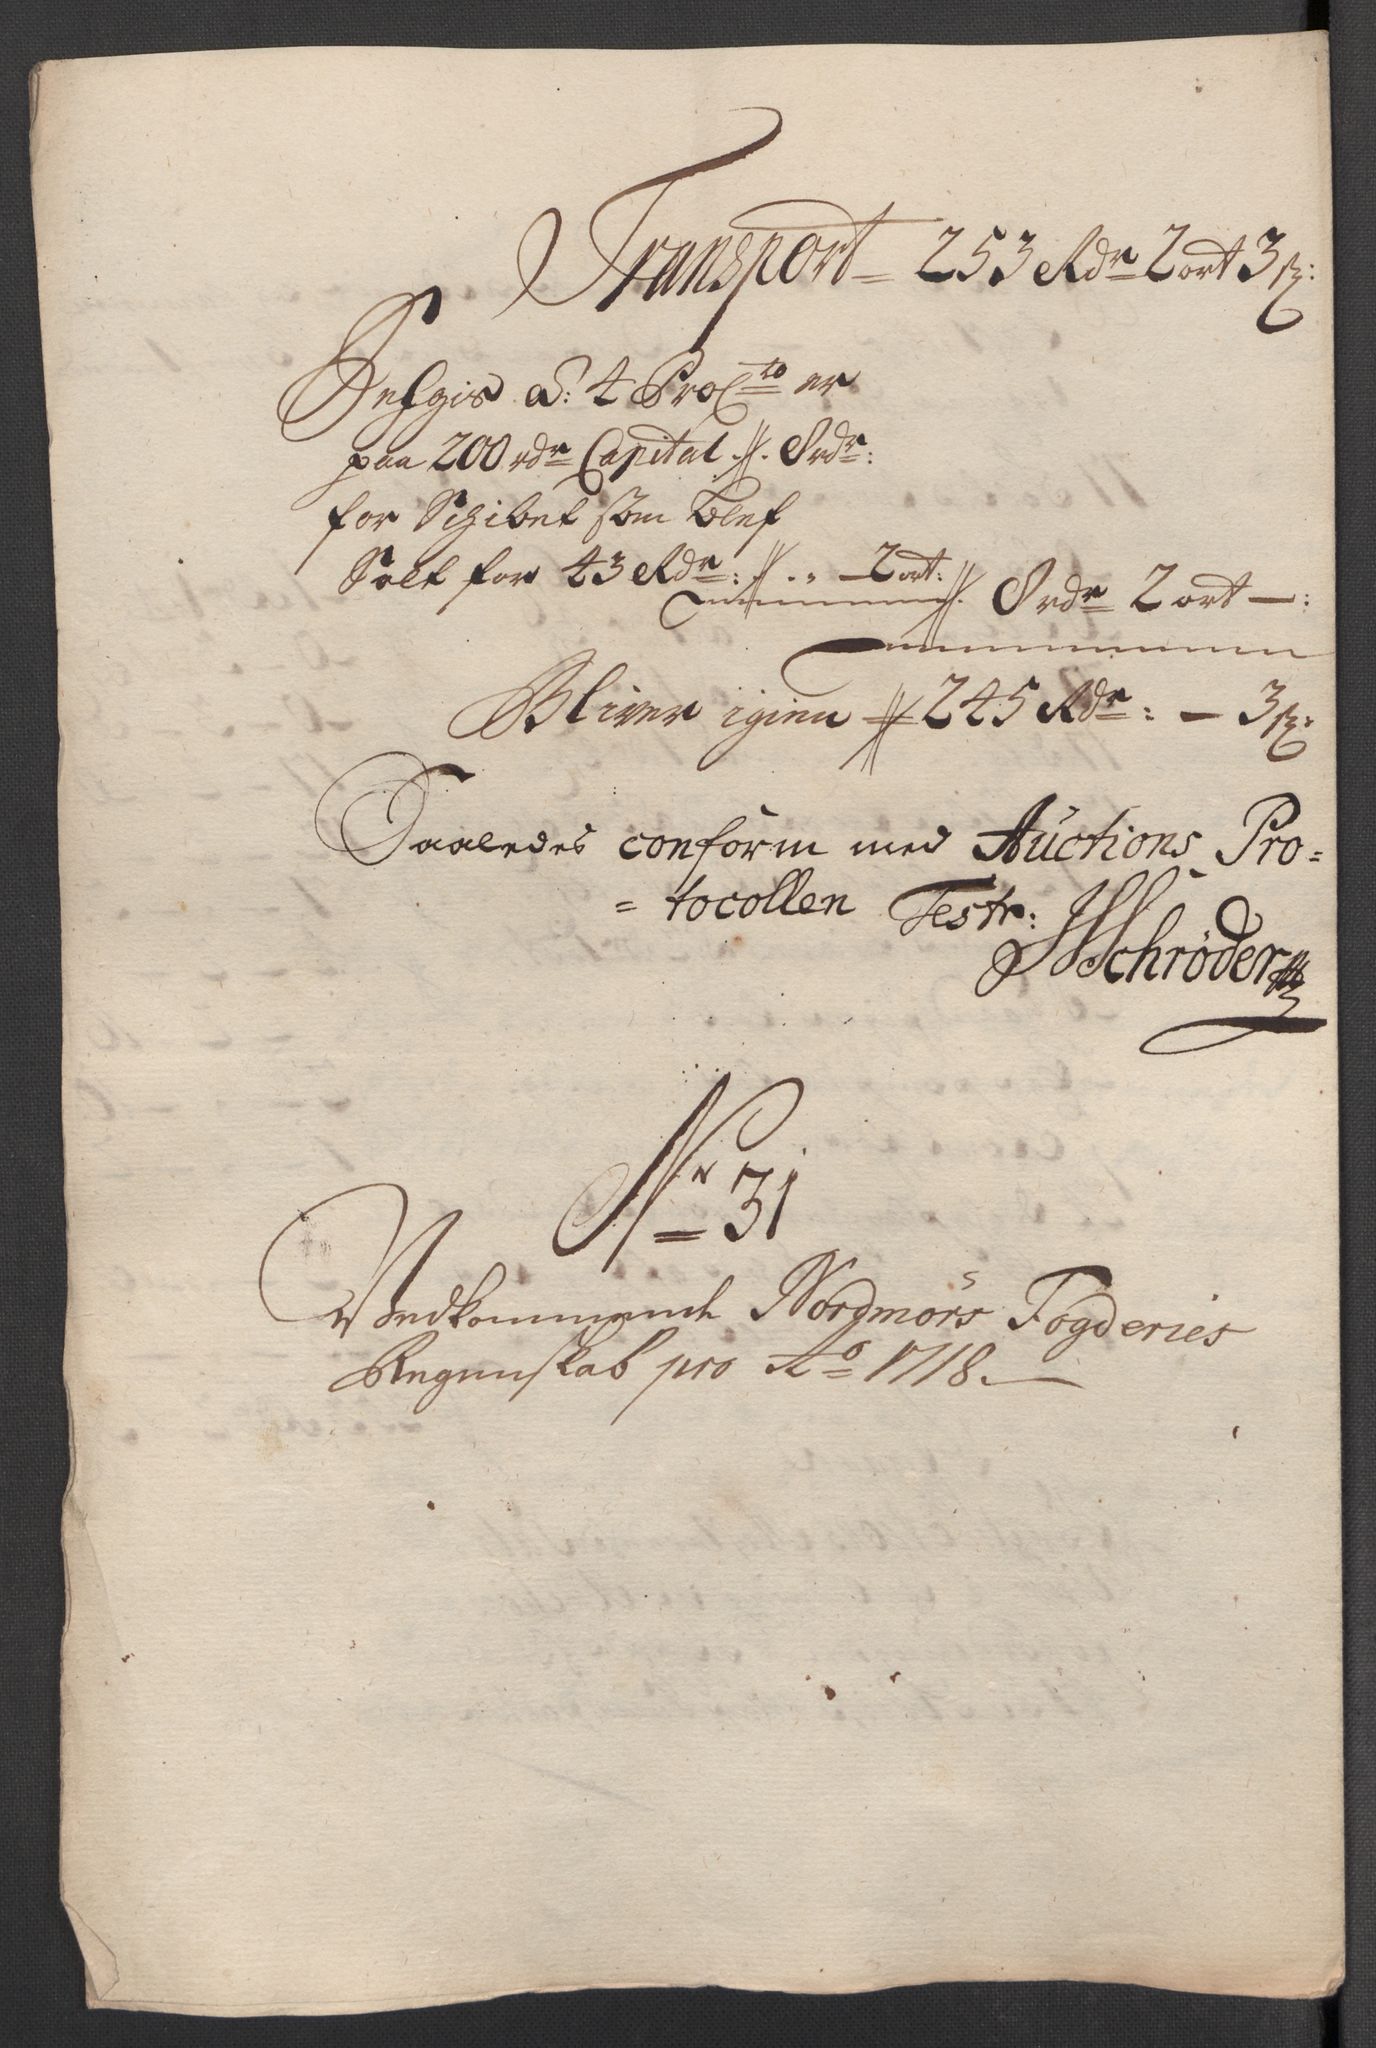 Transport = 253 Rdr 2 ort 3 s:
Afgis a: 4 ProCto er
paa 200 rdr Capital .//. 8 rdr:
for Schibet som blef
Solt for 43 Rdr: // .. - 2 ort: // 8 rdr 2 ort —:
Bliver igien // 245 Rdr: — 3 s:
Saaledes conform med Auctions Pro=
= tocollen Testr: Schrøder
Nr 31
Vedkommende Nordmørs Fogderies
Regenskab pro Ao 1718. —